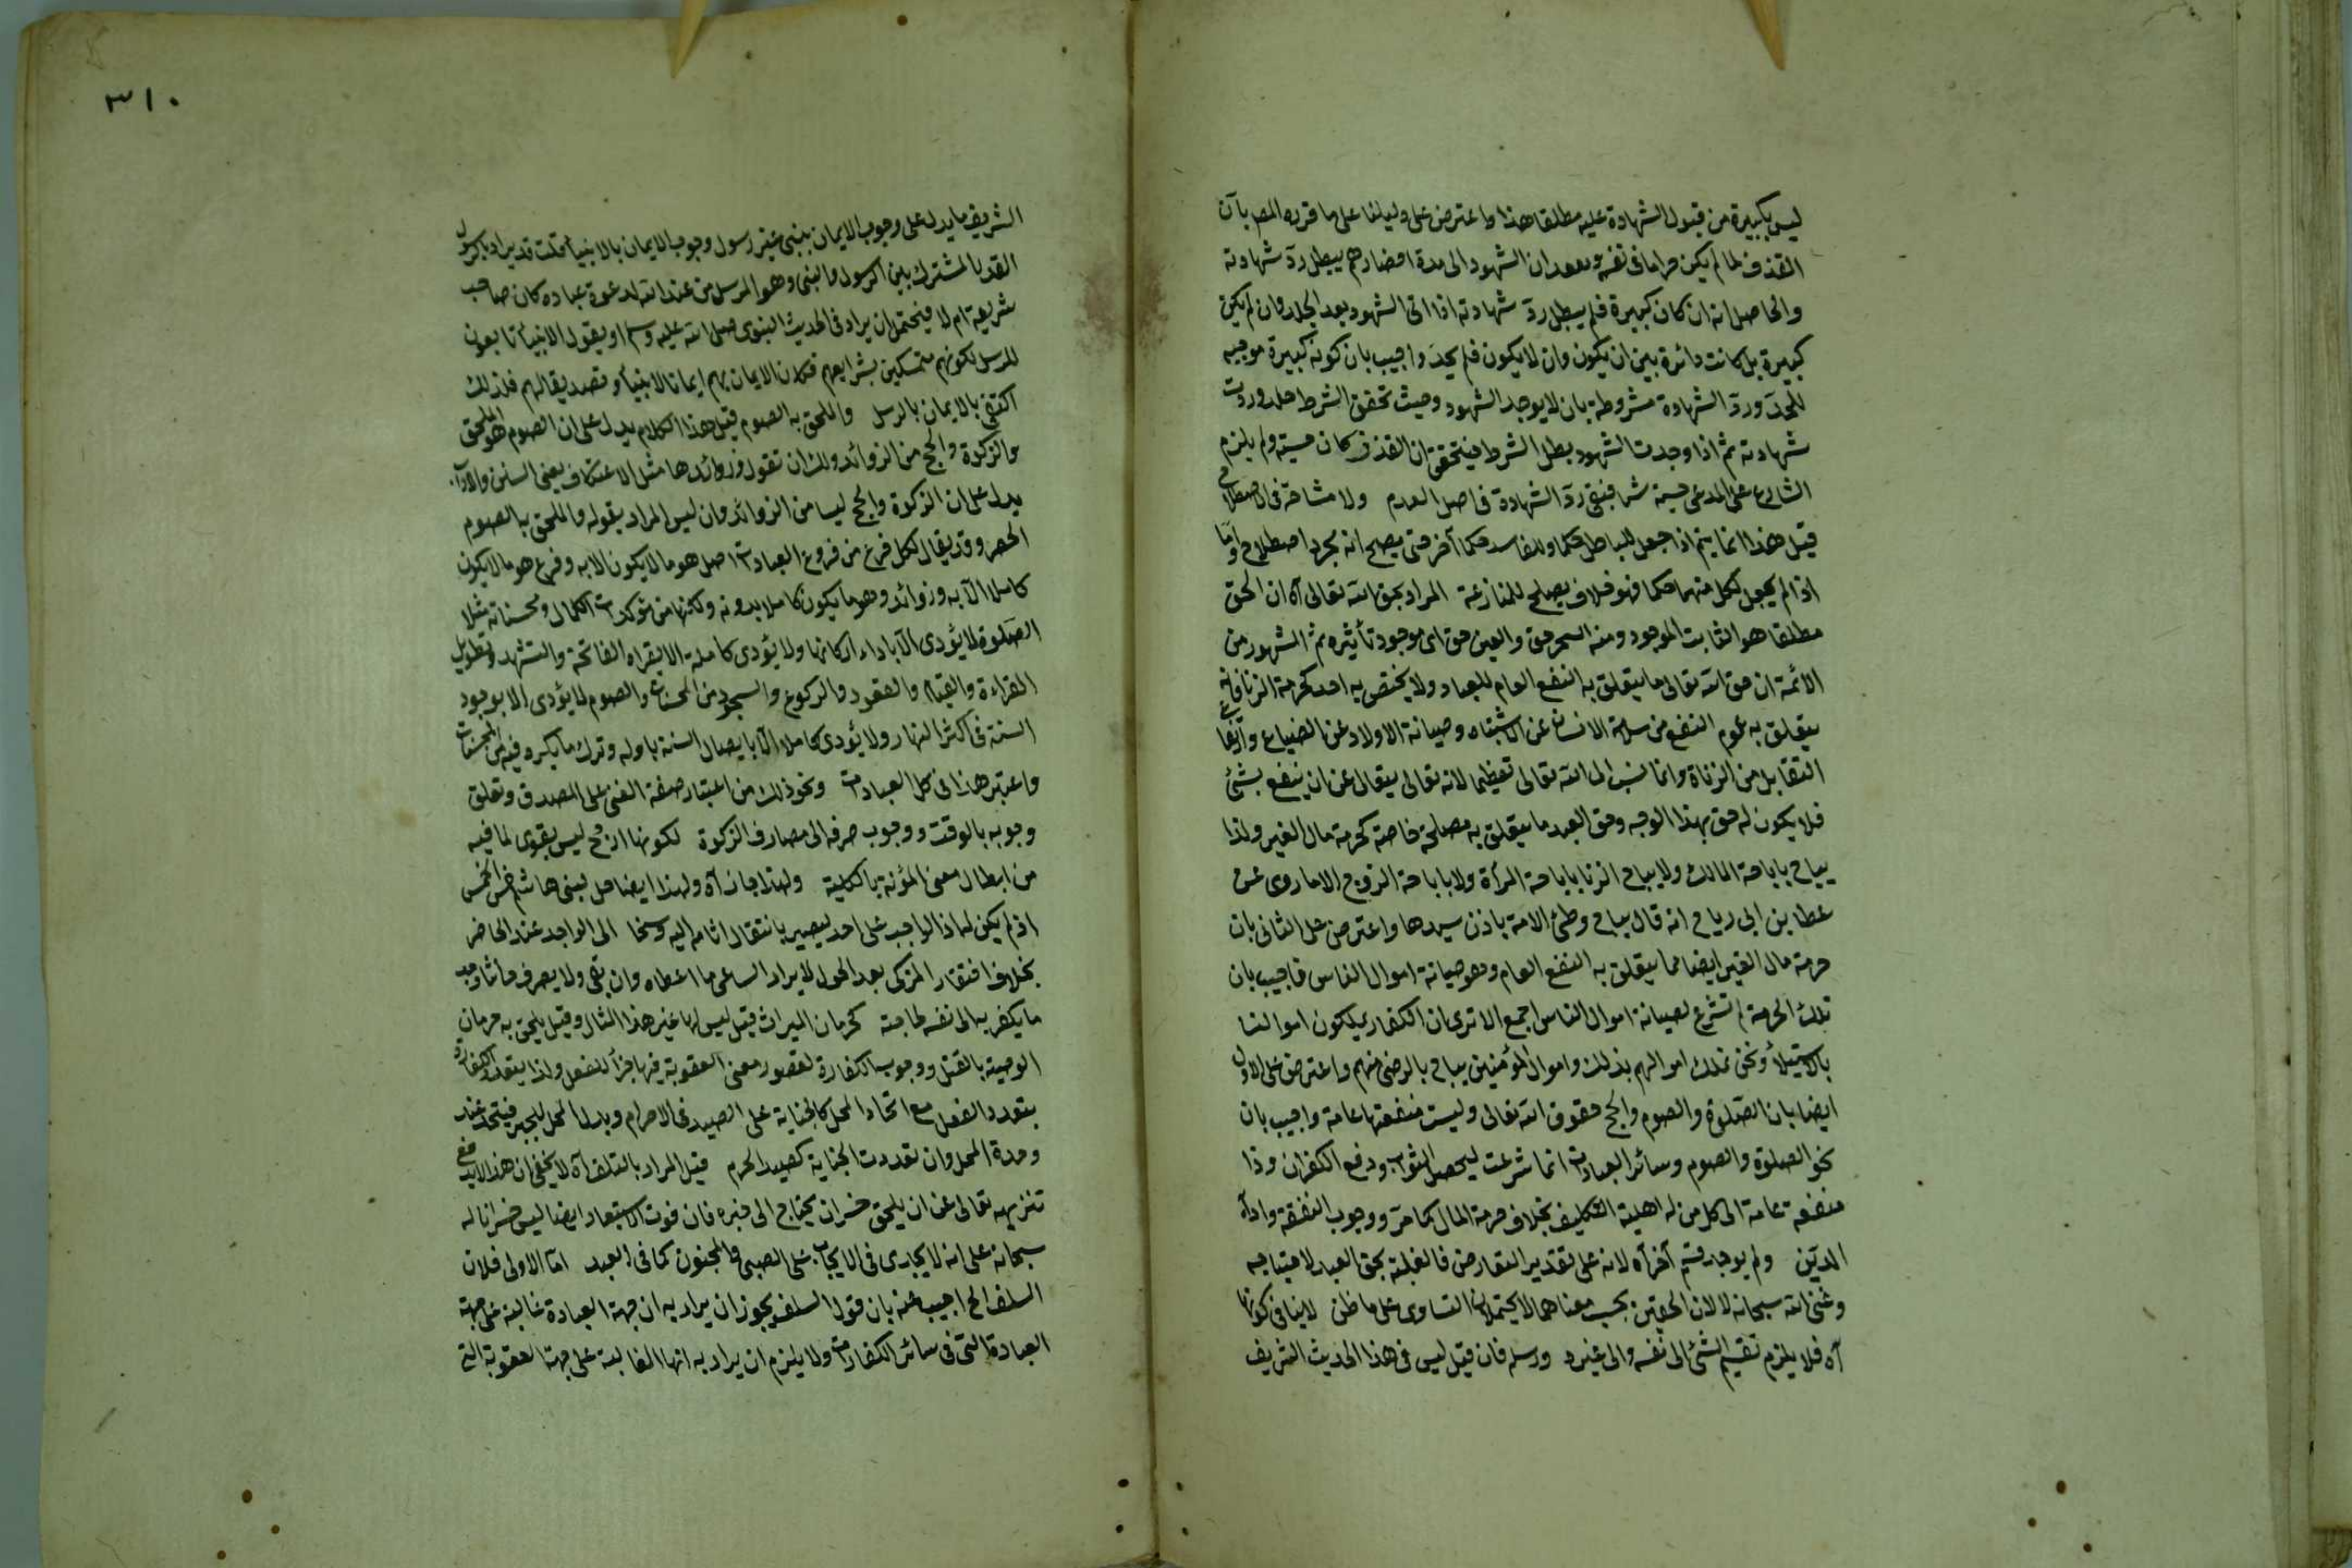 ليس بكبيرة من قبول الشهادة عليه مطلقا هذا واعترض على دليلنا على ما قرره المصر بان
القذف لما لم يكن حراما في نفسه الشهود الى مدة احضارهم يبطل رد شهادته
والحاصل انه ان كان كبيرة فلم يبطل رد شهادته اذا اتى الشهود بعد الجلد وان لم يكن
كبيرة بل كانت دائرة بين ان يكون وان لا يكون فلم يحد واجيب بان كونه كبيرة موجبه
للحد ورد الشهادة مشروطة بان لا يوجد الشهود وحيث تحقق الشرط حد وردت
شهادته ثم اذا وجدت الشهود بطل الشرط فيتحقق ان القذف كان حسبة ولم يلزم
الشارع على المدعى حسبة شيئا فبقى رد الشهادة في اصل العدم ولا مشاحة في الاصطلاح
قيل هذا انما يتم اذا جعل للباطل حكما وللفاسد حكما آخر حتى يصح انه مجرد اصطلاح واما
اذا لم يجعل لكل منهما حكما فهو خلاف يصلح للمنازعة المراد بحق الله تعالى آه ان الحق
مطلقا هو الثابت الموجود ومنه السحر حق والعين حق اى موجود تأثيره ثم المشهور من
الائمة ان حق الله تعالى ما يتعلق به النفع العام للعباد ولا يختص به احد كحرمة الزنا فانه
يتعلق به عموم النفع من سلامة الانساب عن الاشتباه وصيانة الاولاد عن الضياع وارتفاع
التقابل من الزناة وانما نسب الى الله تعالى تعظيما لانه تعالى يتعالى عن ان ينتفع بشئ
فلا يكون له حق بهذا الوجه وحق العبد ما يتعلق به مصلحة خاصة كحرمة مال الغير ولذا
يباح باباحة المالك ولا يباح الزنا باباحة المرأة ولا باباحة الزوج الا ما روى عن
عطا بن ابى رباح انه قال يباح وطئ الامة باذن سيدها واعترض على الثانى بان
حرمة مال الغير ايضا مما يتعلق به النفع العام وهو صيانة اموال الناس فاجيب بان
تلك الحرمة لم تشرع لصيانة اموال الناس اجمع الا ترى ان الكفار يملكون اموالنا
بالاستيلاء ونحن نملك اموالهم بذلك واموال المؤمنين يباح بالرضى منهم واعترض على الاول
ايضا بان الصلوة والصوم والحج حقوق الله تعالى وليست منفعتها عامة واجيب بان
نحو الصلوة والصوم وسائر العبادات انما شرعت ليحصل الثواب ودفع الكفران وذا
منفعة عامة الى كل من له اهلية التكليف بخلاف حرمة المال كما مر ووجوب النفقة واداء
الدين ولم يوجد قسم آخر آه لانه على تقدير التعارض فالغلبة بحق العبد لاحتياجه
وغنى الله سبحانه لا لان الحقين بحسب معناهما لا يحتملان التساوى على ما ظن لا ينافى كونها
آه فلا يلزم تقسيم الشئ الى نفسه والى غيره ورسله فان قيل ليس في هذا الحديث الشريف
٣١٠
الشريف ما يدل على وجوب الايمان بنبى غير رسول وجوب الايمان بالانبياء قلت قد يراد بالرسول
القدر المشترك بين الرسول والنبى وهو المرسل من عند الله لدعوة عباده كان صاحب
شريعة ام لا فيحتمل ان يراد في الحديث النبوى صلى الله عليه وسلم او يقول الانبياء تابعون
للرسل لكونهم متمسكين بشرايعهم فكان الايمان بهم ايمانا لانبياء وتصديقا لهم فلذلك
اكتفى بالايمان بالرسل والملحق به الصوم قيل هذا الكلام يدل على ان الصوم هو الملحق
والزكوة والحج من الزوائد ولك ان تقول وزوائدها مثل الاعتكاف يعنى السنن والآداب
يدل على ان الزكوة والحج ليسا من الزوائد وان ليس المراد بقوله والملحق به الصوم
الحصر وقد يقال لكل فرع من فروع العبادات اصل هو ما لا يكون الا به وفرع هو ما لا يكون
كاملا الا به وزوائد وهو ما يكون كاملا بدونه ولكنها من مؤكدات الكمال ومحسناته مثلا
الصلوة لا يؤدى الا باداء اركانها ولا يؤدى كاملة الا بقراءة الفاتحة والتشهد وتطويل
القراءة والقيام والقعود والركوع والسجود من المحسنات والصوم لا يؤدى الا بوجود
السنة في اكثر النهار ولا يؤدى كاملا الا بايصال السنة باوله وترك ما يكره فيه من المحسنات
واعتبر هذا في كل العبادات ونحو ذلك من اعتبار صفة الغنى على المصدق وتعلق
وجوبه بالوقت ووجوب صرفه الى مصارف الزكوة لكونها ارجح ليس بقوى لما فيه
من ابطال معنى المؤنة بالكلية ولهذا جاز آه ولهذا ايضا حل لبنى هاشم خمس الخمس
اذ لم يكن اذا الواجب على احد ليصير بانتقال اثامه اليه وسخا الى الواجد عند الحاضر
بخلاف افتقار المزكى بعد الحول لا يراد الساعى ما اعطاه وان بقى ولا يصرف
ما يكفر به الى نفسه لحاجته كحرمان الميراث قيل ليس لها غير هذا المثال وقيل يلحق به حرمان
الوصية بالقتل ووجوب الكفارة لقصور معنى العقوبة فيها جزاء للفعل ولذا يتعدد الكفارة
بتعدد الفعل مع اتحاد المحل كالجناية على الصيد في الاحرام وبدل المحل للجبر فيتحد عند
وحدة المحل وان تعددت الجناية كصيد الحرم قيل المراد بالتلف آه لا يخفى ان هذا لا يدفع
تنزيهه تعالى عن ان يلحق خسران يحتاج الى جبره فان فوت الاستعباد ايضا ليس خسرانا له
سبحانه على انه لا يجارى في الايجاب على الصبى والمجنون كما في العبد اما الاولى فلان
السلف الخ اجيب عنه بان قول السلف يجوز ان يراد به ان جهة العبادة غالبة على جهة
العبادة التى في سائر الكفارات ولا يلزم ان يراد به انها الغالبة على جهة العقوبة التى